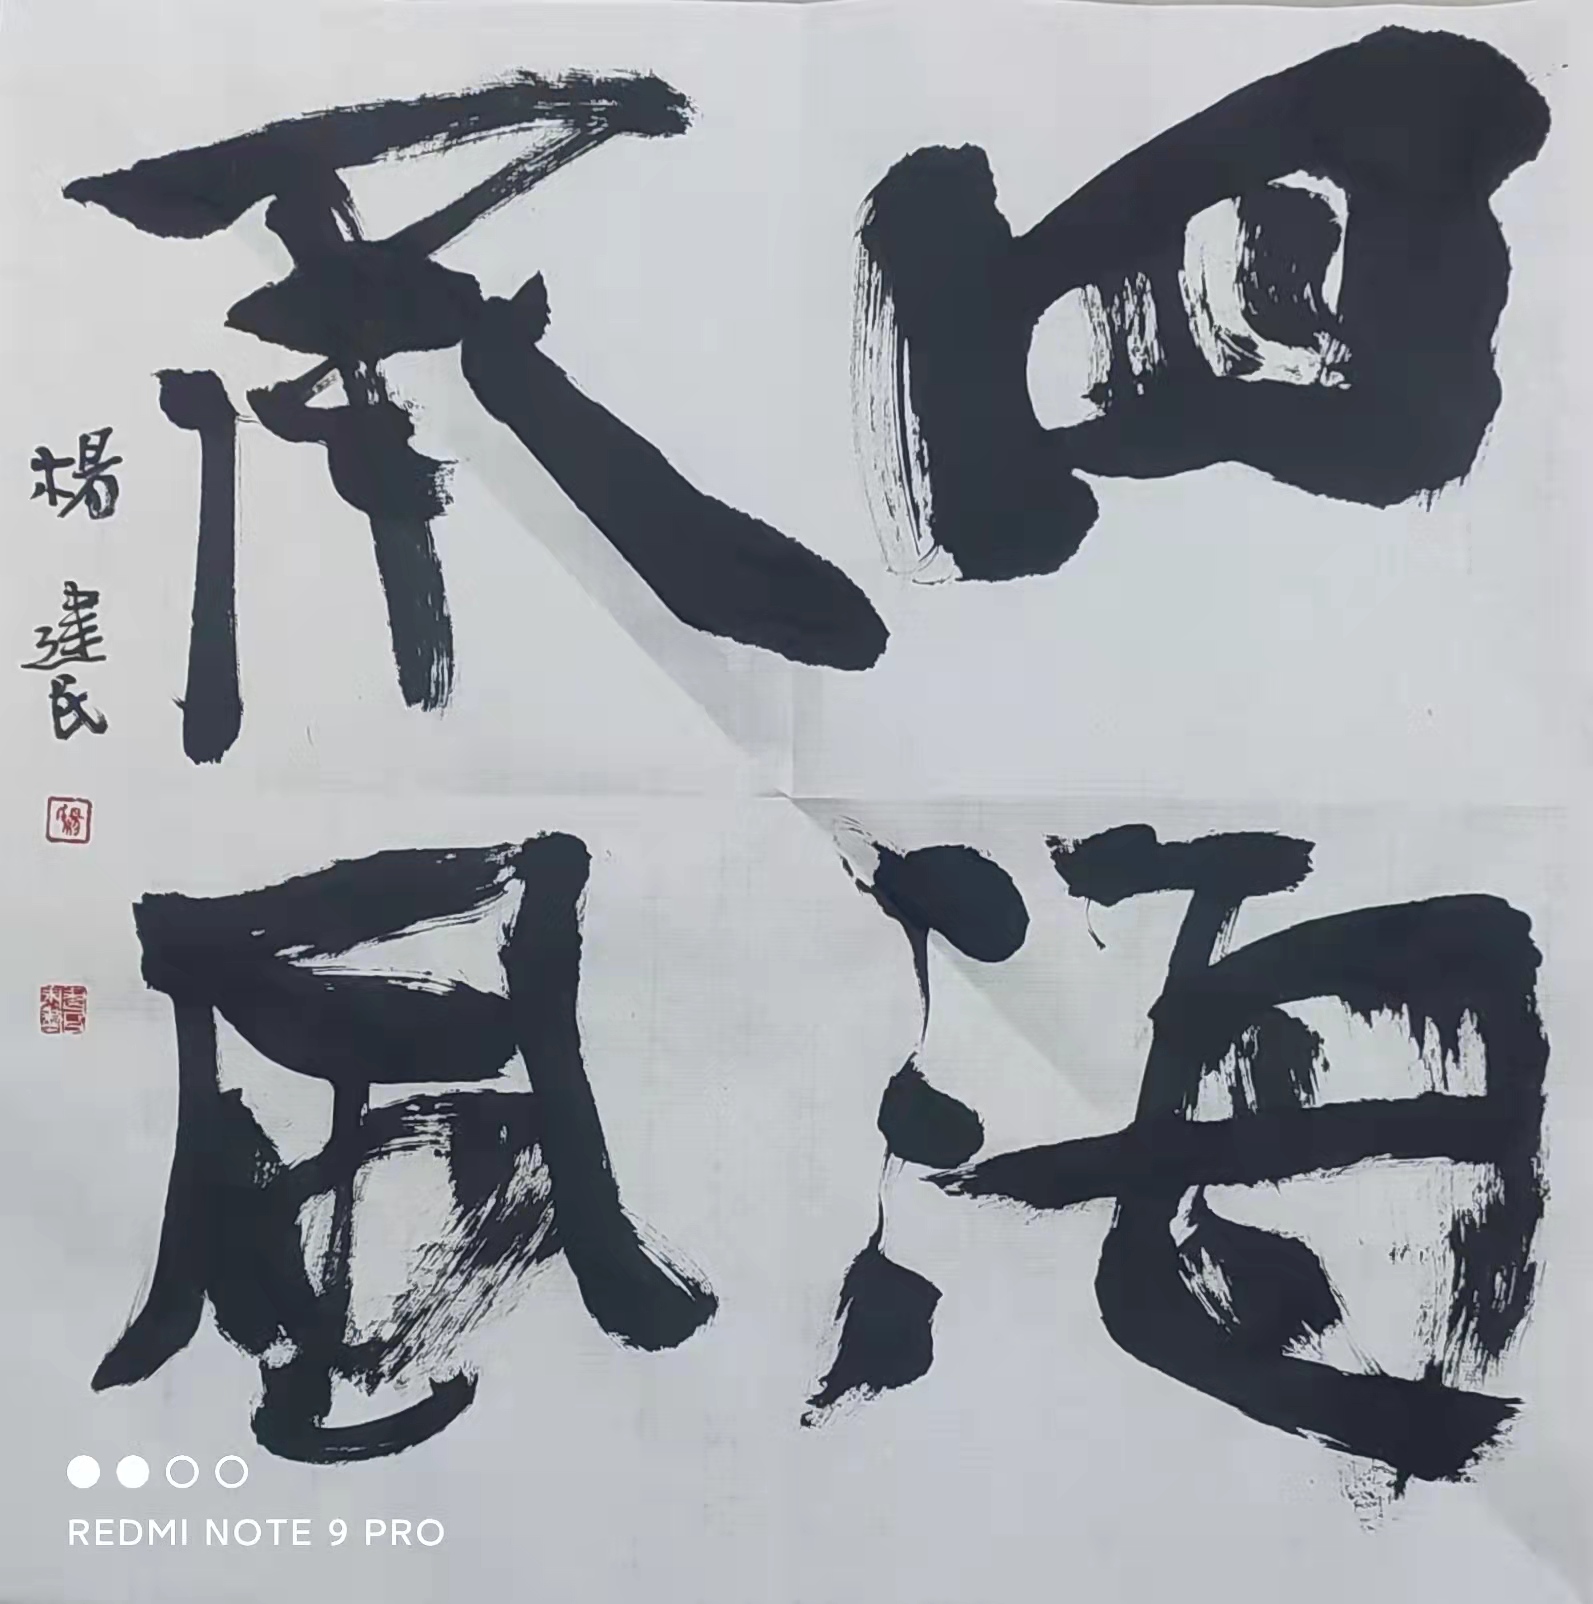 四海
承風
楊建民
REDMI NOTE 9 PRO